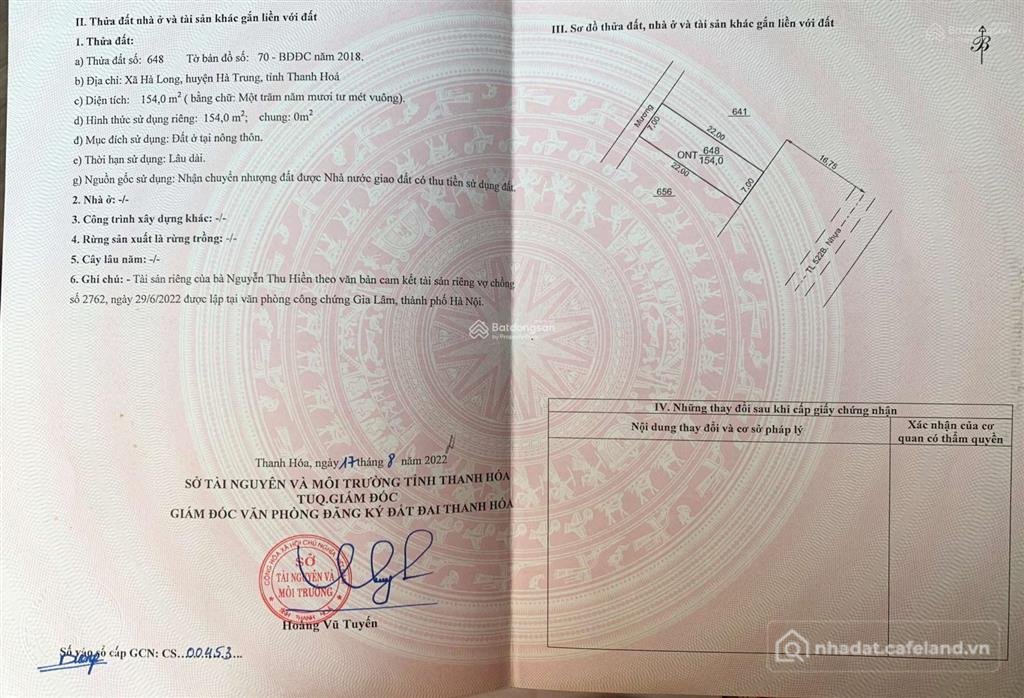 II. Thửa đất nhà ở và tài sản khác gắn liền với đất
1. Thửa đất:
a) Thửa đất số: 648 Tờ bản đồ số: 70 - BDĐC năm 2018.
b) Địa chỉ: Xã Hà Long, huyện Hà Trung, tỉnh Thanh Hoá
c) Diện tích: 154,0 m² ( bằng chữ: Một trăm năm mươi tư mét vuông).
d) Hình thức sử dụng riêng: 154,0 m²; chung: 0m²
đ) Mục đích sử dụng: Đất ở tại nông thôn.
e) Thời hạn sử dụng: Lâu dài.
g) Nguồn gốc sử dụng: Nhận chuyển nhượng đất được Nhà nước giao đất có thu tiền sử dụng đất.
2. Nhà ở: -/-
3. Công trình xây dựng khác: -/-
4. Rừng sản xuất là rừng trồng: -/-
5. Cây lâu năm: -/-
6. Ghi chú: - Tài sản riêng của bà Nguyễn Thu Hiền theo văn bản cam kết tài sản riêng vợ chồng
số 2762, ngày 29/6/2022 được lập tại văn phòng công chứng Gia Lâm, thành phố Hà Nội.
Thanh Hóa, ngày 17 tháng 8 năm 2022
SỞ TÀI NGUYÊN VÀ MÔI TRƯỜNG TỈNH THANH HÓA
TUQ.GIÁM ĐỐC
GIÁM ĐỐC VĂN PHÒNG ĐĂNG KÝ ĐẤT ĐAI THANH HÓA
SỞ
TÀI NGUYÊN VÀ
MÔI TRƯỜNG
Hoàng Vũ Tuyến
Số vào sổ cấp GCN: CS..00453...
III. Sơ đồ thửa đất, nhà ở và tài sản khác gắn liền với đất
B
Mương
7,00
641
22,00
ONT 648
154,0
22,00
7,00
656
16,75
TL 522B. Nhựa
IV. Những thay đổi sau khi cấp giấy chứng nhận
Nội dung thay đổi và cơ sở pháp lý
Xác nhận của cơ
quan có thẩm quyền
Batdongsan
by PropertyGuru
nhadat.cafeland.vn